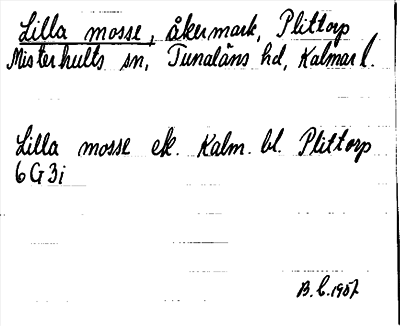 Lilla mosse, åkermark, Plittorp
Misterhults sn, Tunaläns hd, Kalmar l.
Lilla mosse ek. Kalm. bl. Plittorp
6G3i
B.C. 1957